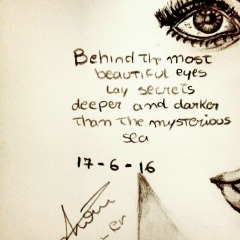 Behind the most
beautiful eyes
lay secrets
deeper and darker
than the mysterious
sea
17-6-16